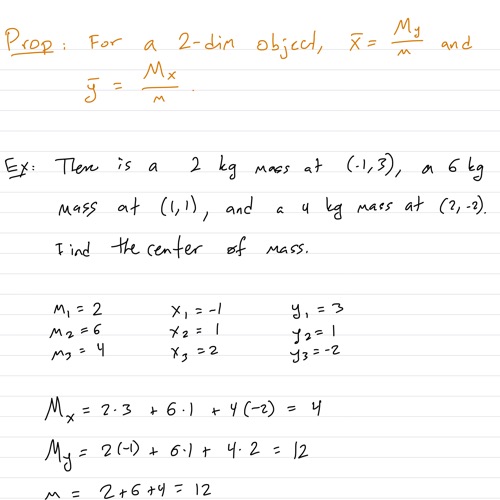 Prop: For a 2-dim object, x̄ = My/m and
ȳ = Mx/m.
Ex: There is a 2 kg mass at (-1,3), a 6 kg
mass at (1,1), and a 4 kg mass at (2,-2).
Find the center of mass.
m₁ = 2 x₁ = -1 y₁ = 3
m₂ = 6 x₂ = 1 y₂ = 1
m₃ = 4 x₃ = 2 y₃ = -2
Mx = 2·3 + 6·1 + 4(-2) = 4
My = 2(-1) + 6·1 + 4·2 = 12
m = 2+6+4 = 12